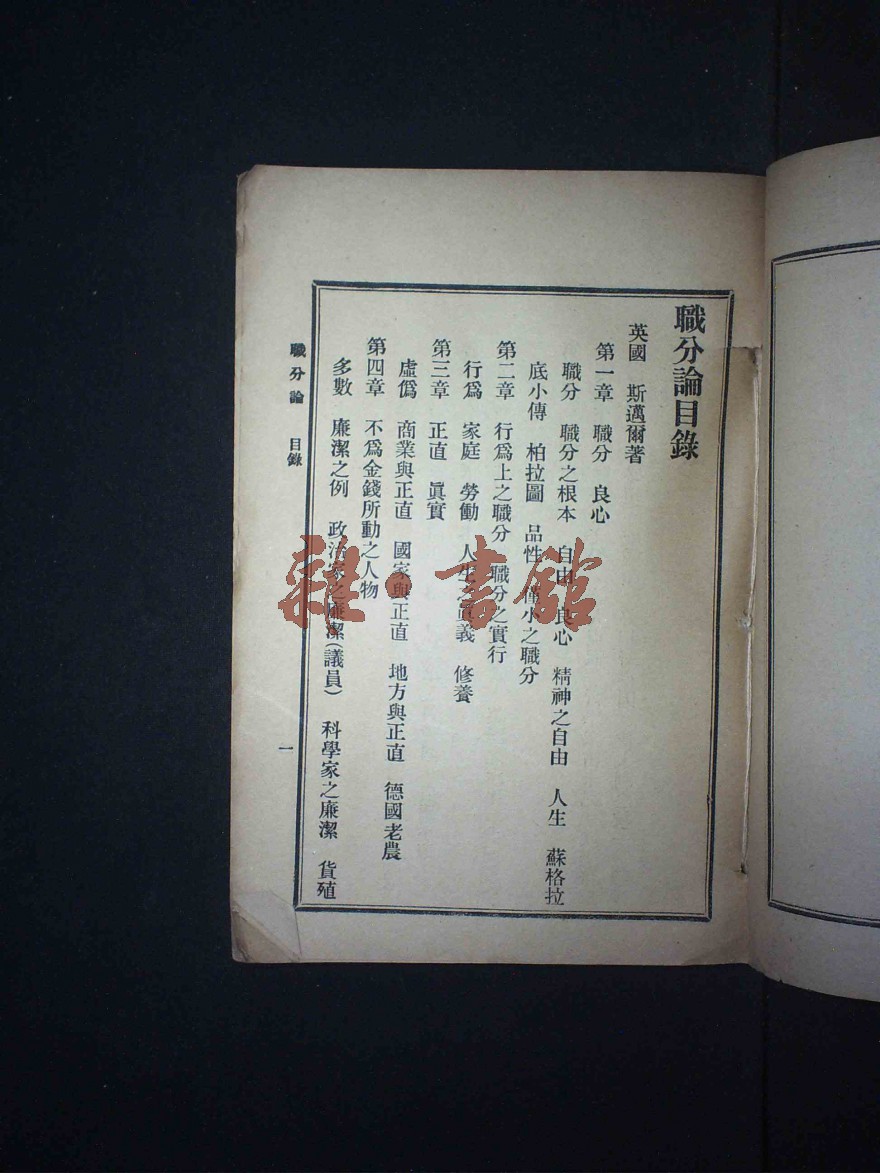 職分論目錄
英國 斯邁爾著
第一章 職分 良心
職分 職分之根本 自由 良心 精神之自由 人生 蘇格拉
底小傳 柏拉圖 品性 僅小之職分
第二章 行爲上之職分 職分之實行
行爲 家庭 勞働 人生之眞義 修養
第三章 正直 眞實
虛僞 商業與正直 國家與正直 地方與正直 德國老農
第四章 不爲金錢所動之人物
多數 廉潔之例 政治家之廉潔(議員) 科學家之廉潔 貨殖
職分論 目錄
一
雜·書館